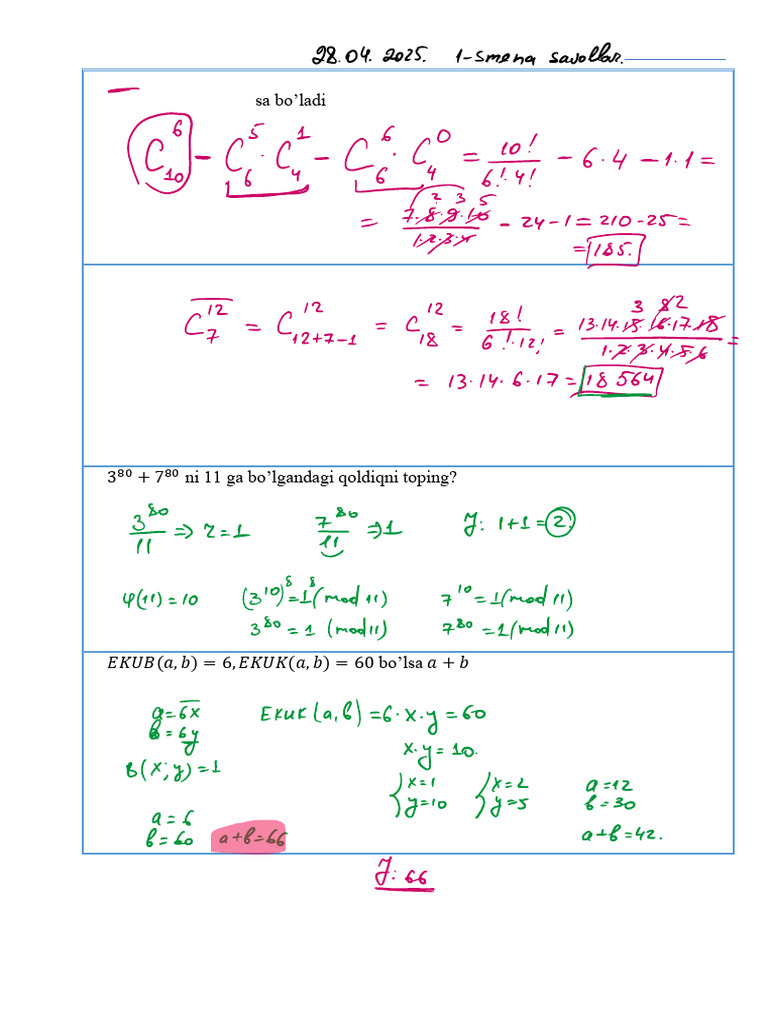 28.04.2025. 1-smena savollar.
sa bo’ladi
C₁₀⁶ - C₆⁵ · C₄¹ - C₆⁶ · C₄⁰ = 10!/(6!·4!) - 6·4 - 1·1 =
= (7·8·9·10)/(1·2·3·4) - 24-1 = 210-25 =
= 185.
C̅₇¹² = C₁₂₊₇₋₁¹² = C₁₈¹² = 18!/(6!·12!) = (13·14·15·16·17·18)/(1·2·3·4·5·6) =
= 13·14·6·17 = 18564
3⁸⁰ + 7⁸⁰ ni 11 ga bo’lgandagi qoldiqni toping?
3⁸⁰/11 ⇒ r=1 7⁸⁰/11 ⇒ 1 J: 1+1=2.
φ(11)=10 (3¹⁰)⁸=1⁸(mod 11) 7¹⁰=1(mod 11)
3⁸⁰=1 (mod 11) 7⁸⁰=1(mod 11)
EKUB(a, b) = 6, EKUK(a, b) = 60 bo’lsa a + b
a=6x EKUK(a,b)=6·x·y=60
b=6y
x·y=10.
B(x;y)=1
x=1 x=2 a=12
y=10 y=5 b=30
a=6
b=60 a+b=66 a+b=42.
J: 66